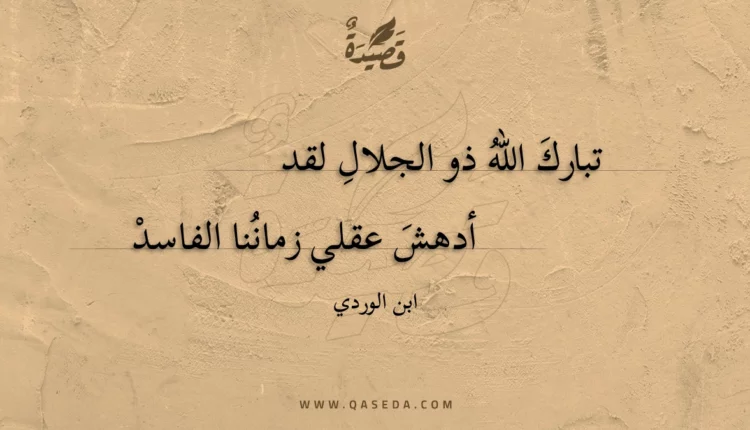 قَصِيْدَةٌ
تباركَ اللهُ ذو الجلالِ لقد
أدهشَ عقلي زمانُنا الفاسدْ
ابن الوردي
WWW.QASEDA.COM